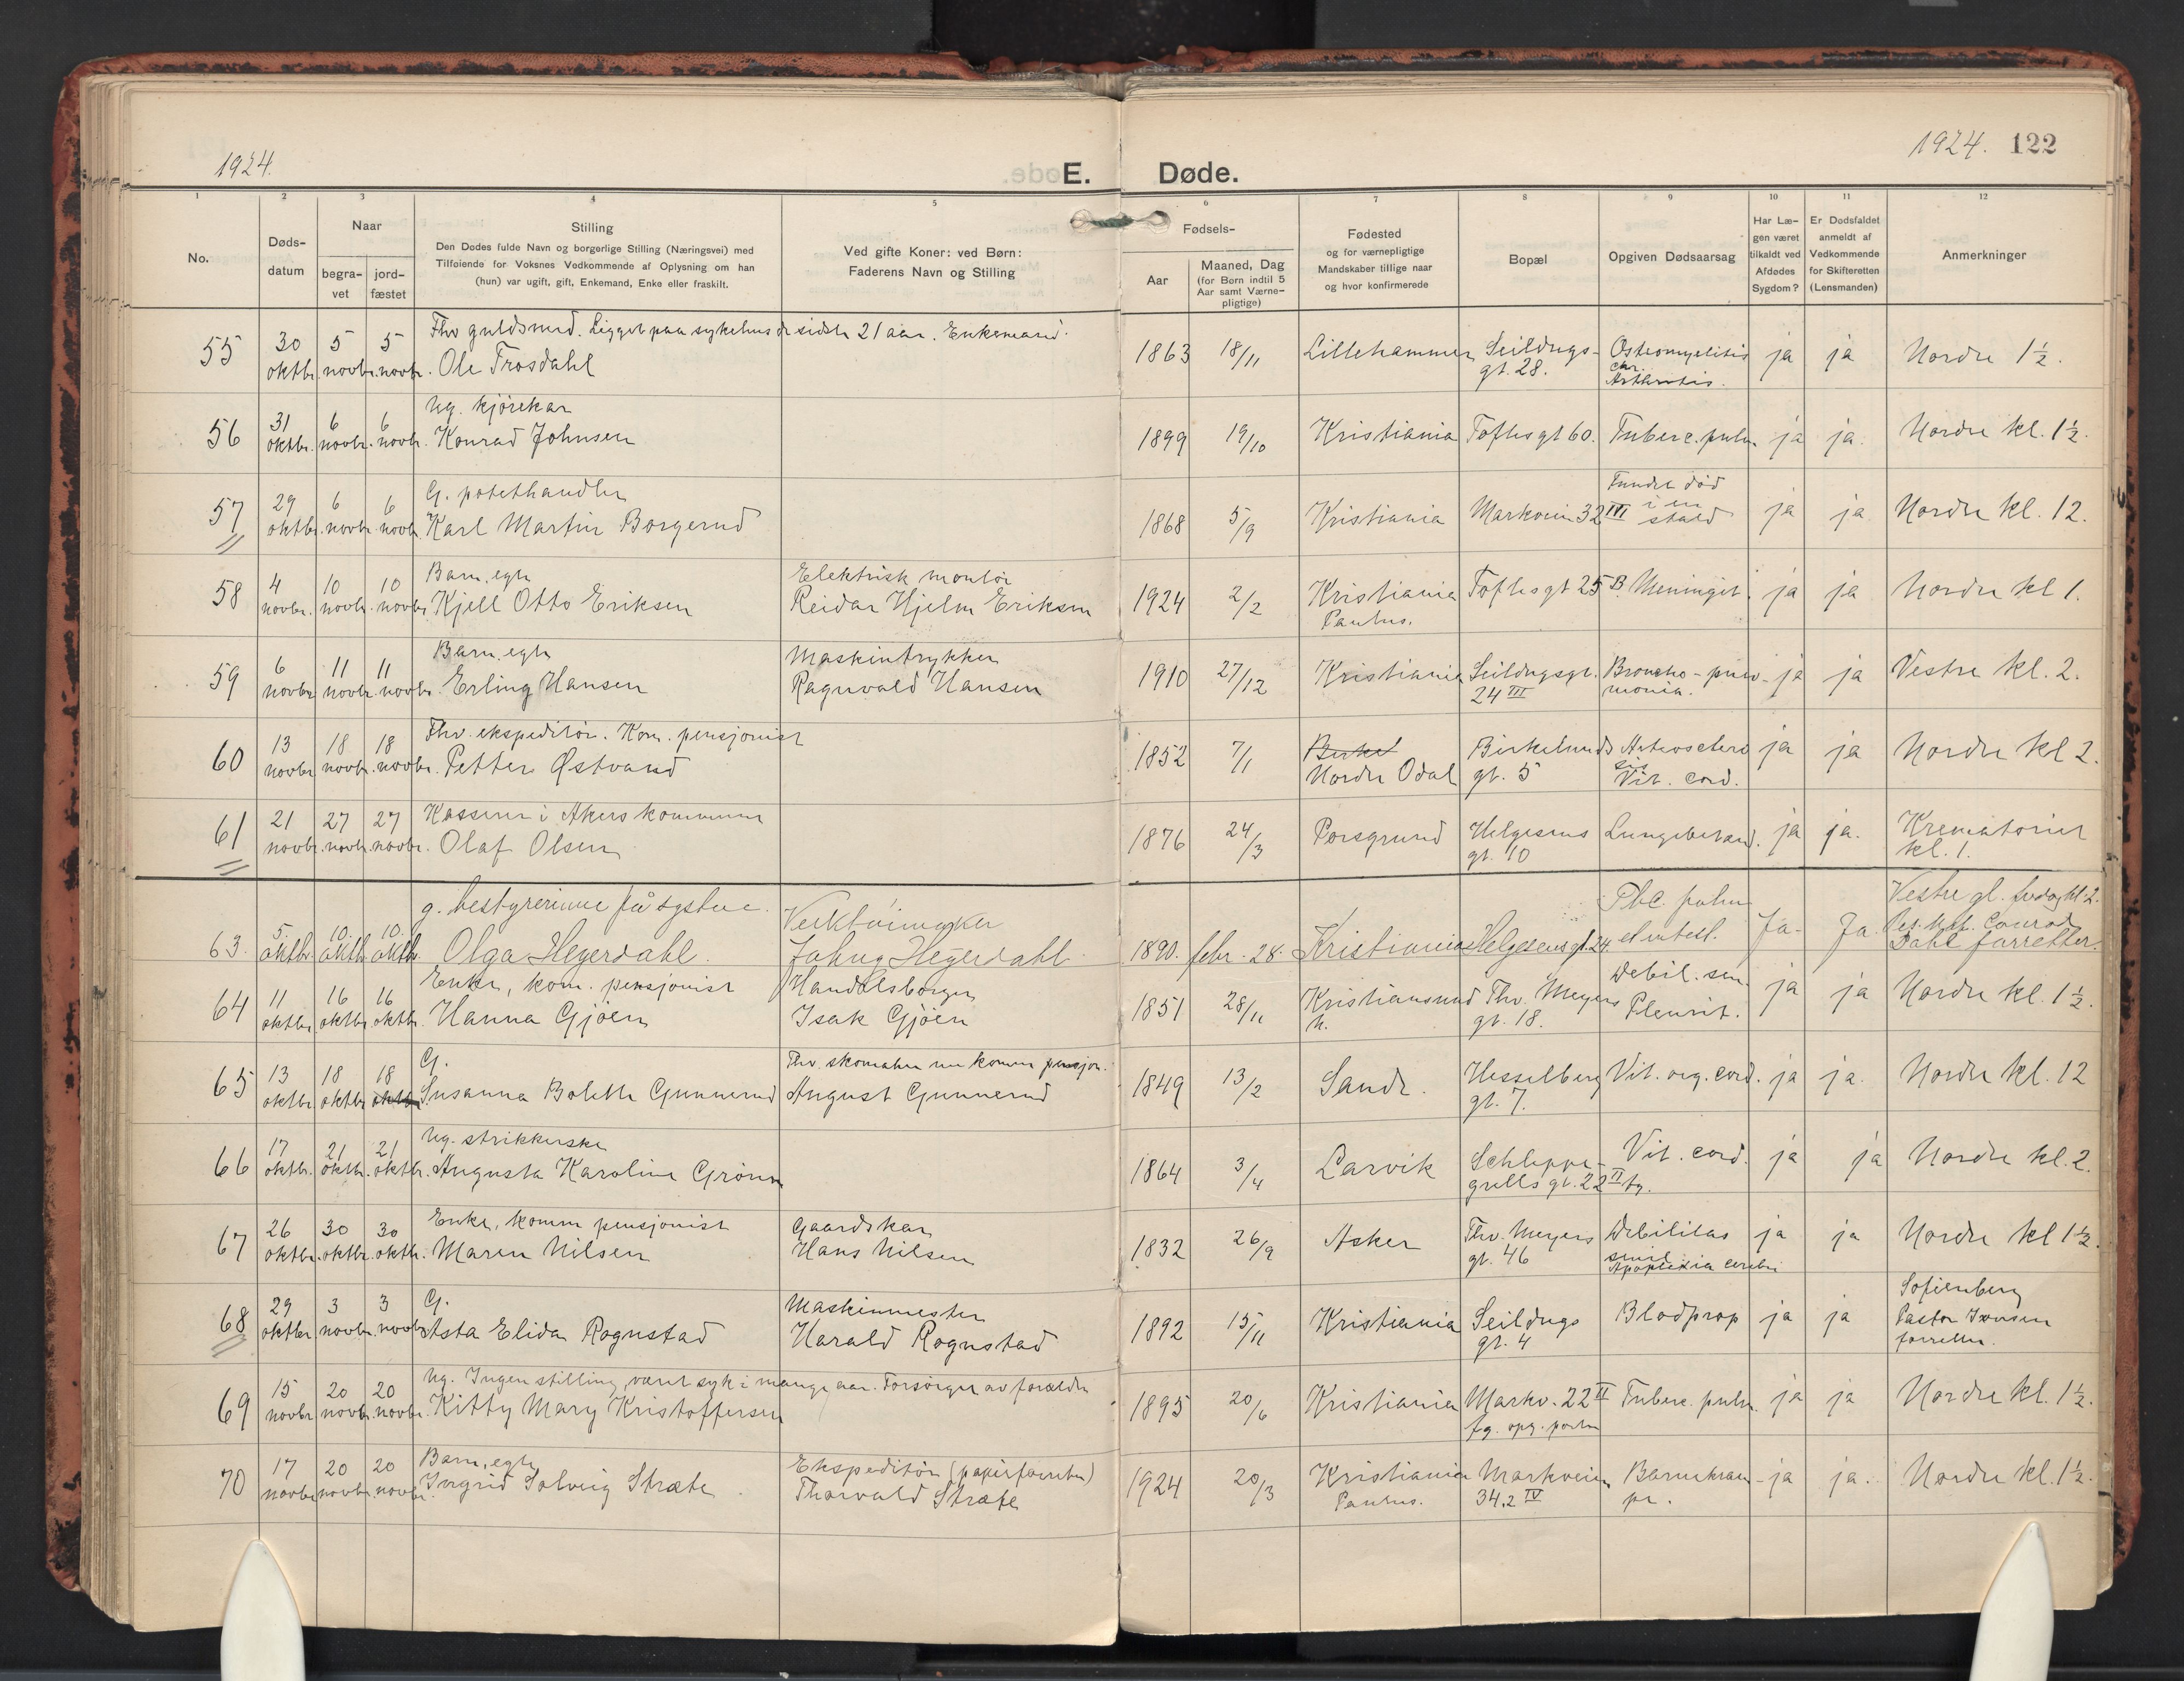 1924.
E. Døde.
1924. 122
1 2 3 4 5 6 7 8 9 10 11 12
No.
Døds-
datum
Naar
begra-
vet
jord-
fæstet
Stilling
Den Dødes fulde Navn og borgerlige Stilling (Næringsvei) med
Tilføiende for Voksnes Vedkommende af Oplysning om han
(hun) var ugift, gift, Enkemand, Enke eller fraskilt.
Ved gifte Koner: ved Børn:
Faderens Navn og Stilling
Fødsels-
Aar
Maaned, Dag
(for Børn indtil 5
Aar samt Værne-
pligtige)
Fødested
og for værnepligtige
Mandskaber tillige naar
og hvor konfirmerede
Bopæl
Opgiven Dødsaarsag
Har Læ-
gen været
tilkaldt ved
Afdødes
Sygdom?
Er Dødsfaldet
anmeldt af
Vedkommende
for Skifteretten
(Lensmanden)
Anmerkninger
Fhv guldsmed. Ligget paa sykehus de sidste 21 aar. Enkemand.
55 30 oktbr. 5 novbr. 5 novbr. Ole Frosdahl 1863 18/11 Lillehammer Seildugs- gt. 28. Osteomyelitis chr. Arthritis. ja ja Nordre 1½.
Ug. kjørekar
56 31 oktbr. 6 novbr. 6 novbr. Konrad Johnsen 1899 19/10 Kristiania Toftesgt 60. Tuberc. pulm ja ja. Nordre kl. 1½.
G. potethandler
57 29 oktbr. 6 novbr. 6 novbr. Karl Martin Borgerud 1868 5/9 Kristiania Markveien 32 III Fundet død i en stald ja ja Nordre kl. 12.
Barn, egte Elektrisk montør
58 4 novbr. 10 novbr. 10 novbr. Kjell Otto Eriksen Reidar Hjelm Eriksen 1924 2/2 Kristiania Paulus. Toftesgt 25 B. Meningit. ja ja Nordre kl 1.
Barn, egte Maskintrykker
59 6 novbr 11 novbr. 11 novbr. Erling Hansen Ragnvald Hansen 1910 27/12 Kristiania Seildugsgt. 24 III Broncho-pneu- monia. ja ja Vestre kl. 2.
Fhv. ekspeditør. Kom. pensjonist
60 13 novbr 18 novbr. 18 novbr. Petter Østvand 1852 7/1 Birkel Nordre Odal Birkelunds gt. 5 Arteosclero sis Vit. cord. ja ja Nordre kl 2.
Kasserer i Akers kommune
61 21 novbr. 27 novbr. 27 novbr. Olaf Olsen 1876 24/3 Porsgrund Helgesens gt. 10 Lungebetænd. ja ja. Krematoriet kl. 1.
g. bestyrerinne på systue. Verktøimaker
63. 5. oktbr. 10. oktb. 10. oktb. Olga Heyerdahl. Heyerdahl. 1890. febr. 28. Kristiania Helgesensgt. 24. Tbc pulm et intest. Ja. Ja. Vestre gl. lørdag kl. 2. Res. kap. Conrad Dahl forretter.
Enke, kom. pensjonist Handelsborger
64 11 oktbr 16 oktbr. 16 oktbr. Hanna Gjöen Isak Gjöen 1851 28/11 Kristiansund n. Thv. Meyers gt. 18. Debil. sen. Pleurit. ja ja Nordre kl. 1½.
G. Fhv. skomaker nu komm pensjon.
65 13 oktbr 18 oktbr. 18 oktbr Susanna Bolette Gunnerud August Gunnerud 1849 13/2 Sande. Hesselberg gt. 7. Vit. org. cord. ja ja. Nordre kl. 12
Ug. strikkerske
66 17 oktbr. 21 oktbr. 21 oktbr. Augusta Karoline Grönn 1864 3/4 Larvik Schleppe- grells gt. 22 II fg. Vit. cord. ja ja Nordre kl. 2.
Enke, komm pensjonist Gaardskar
67 26 oktbr. 30 oktbr. 30 oktbr. Maren Nilsen Hans Nilsen 1832 26/9 Asker Thv. Meyers gt. 46 Debilitas senil. Apoplexia cerebri ja ja Nordre kl 1½.
G. Maskinmester
68 29 oktbr 3 novbr. 3 novbr Asta Elida Rognstad Harald Rognstad 1892 15/11 Kristiania Seildugs gt. 4 Blodprop ja ja Sofienberg Pastor forretter.
Ug. Ingen stilling, været syk i mange aar. Forsørget av forældre
69 15 novbr 20 novbr. 20 novbr. Kitty Mary Kristoffersen 1895 20/6 Kristiania Markv. 22 II fg. opg. porten Tuberc. pulm. ja ja Nordre kl. 1½.
Barn, egte Ekspeditør (papirforretn)
70 17 novbr 20 novbr. 20 novbr. Ingrid Solveig Stræte Thorvald Stræte 1924 20/3 Kristiania Paulus. Markveien 34.2 IV Barnekram- pe. ja ja. Nordre kl. 1½.